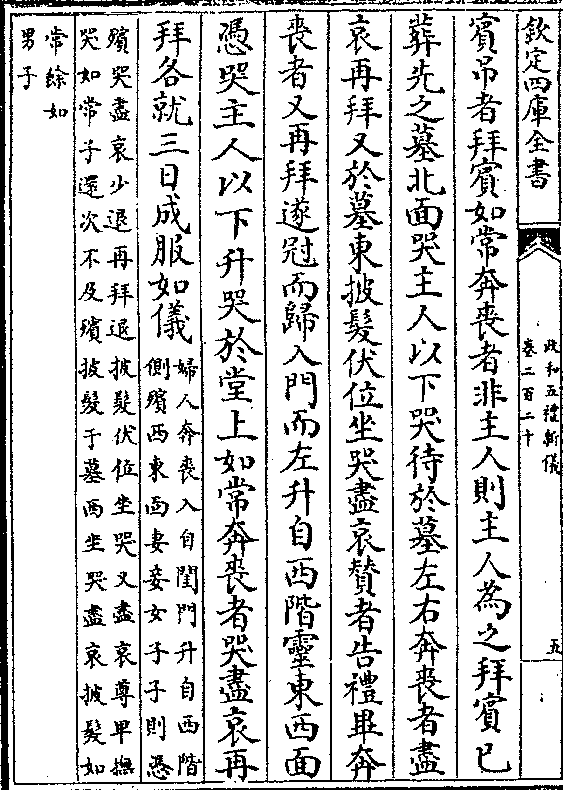 欽定四庫全書
政和五禮新儀
卷二百二十
五
賓弔者拜賓如常奔喪者非主人則主人為之拜賓已
葬先之墓北面哭主人以下哭待於墓左右奔喪者盡
哀再拜又於墓東披髮伏位坐哭盡哀贊者告禮畢奔
喪者又再拜遂冠而歸入門而左升自西階靈東西面
憑哭主人以下升哭於堂上如常奔喪者哭盡哀再
拜各就三日成服如儀
婦人奔喪入自闈門升自西階
側殯西東面妻妾女子子則憑
殯哭盡哀少退再拜退披髮伏位坐哭又盡哀尊卑撫
哭如常子還次不及殯披髮于墓西坐哭盡哀披髮如
常餘如
男子